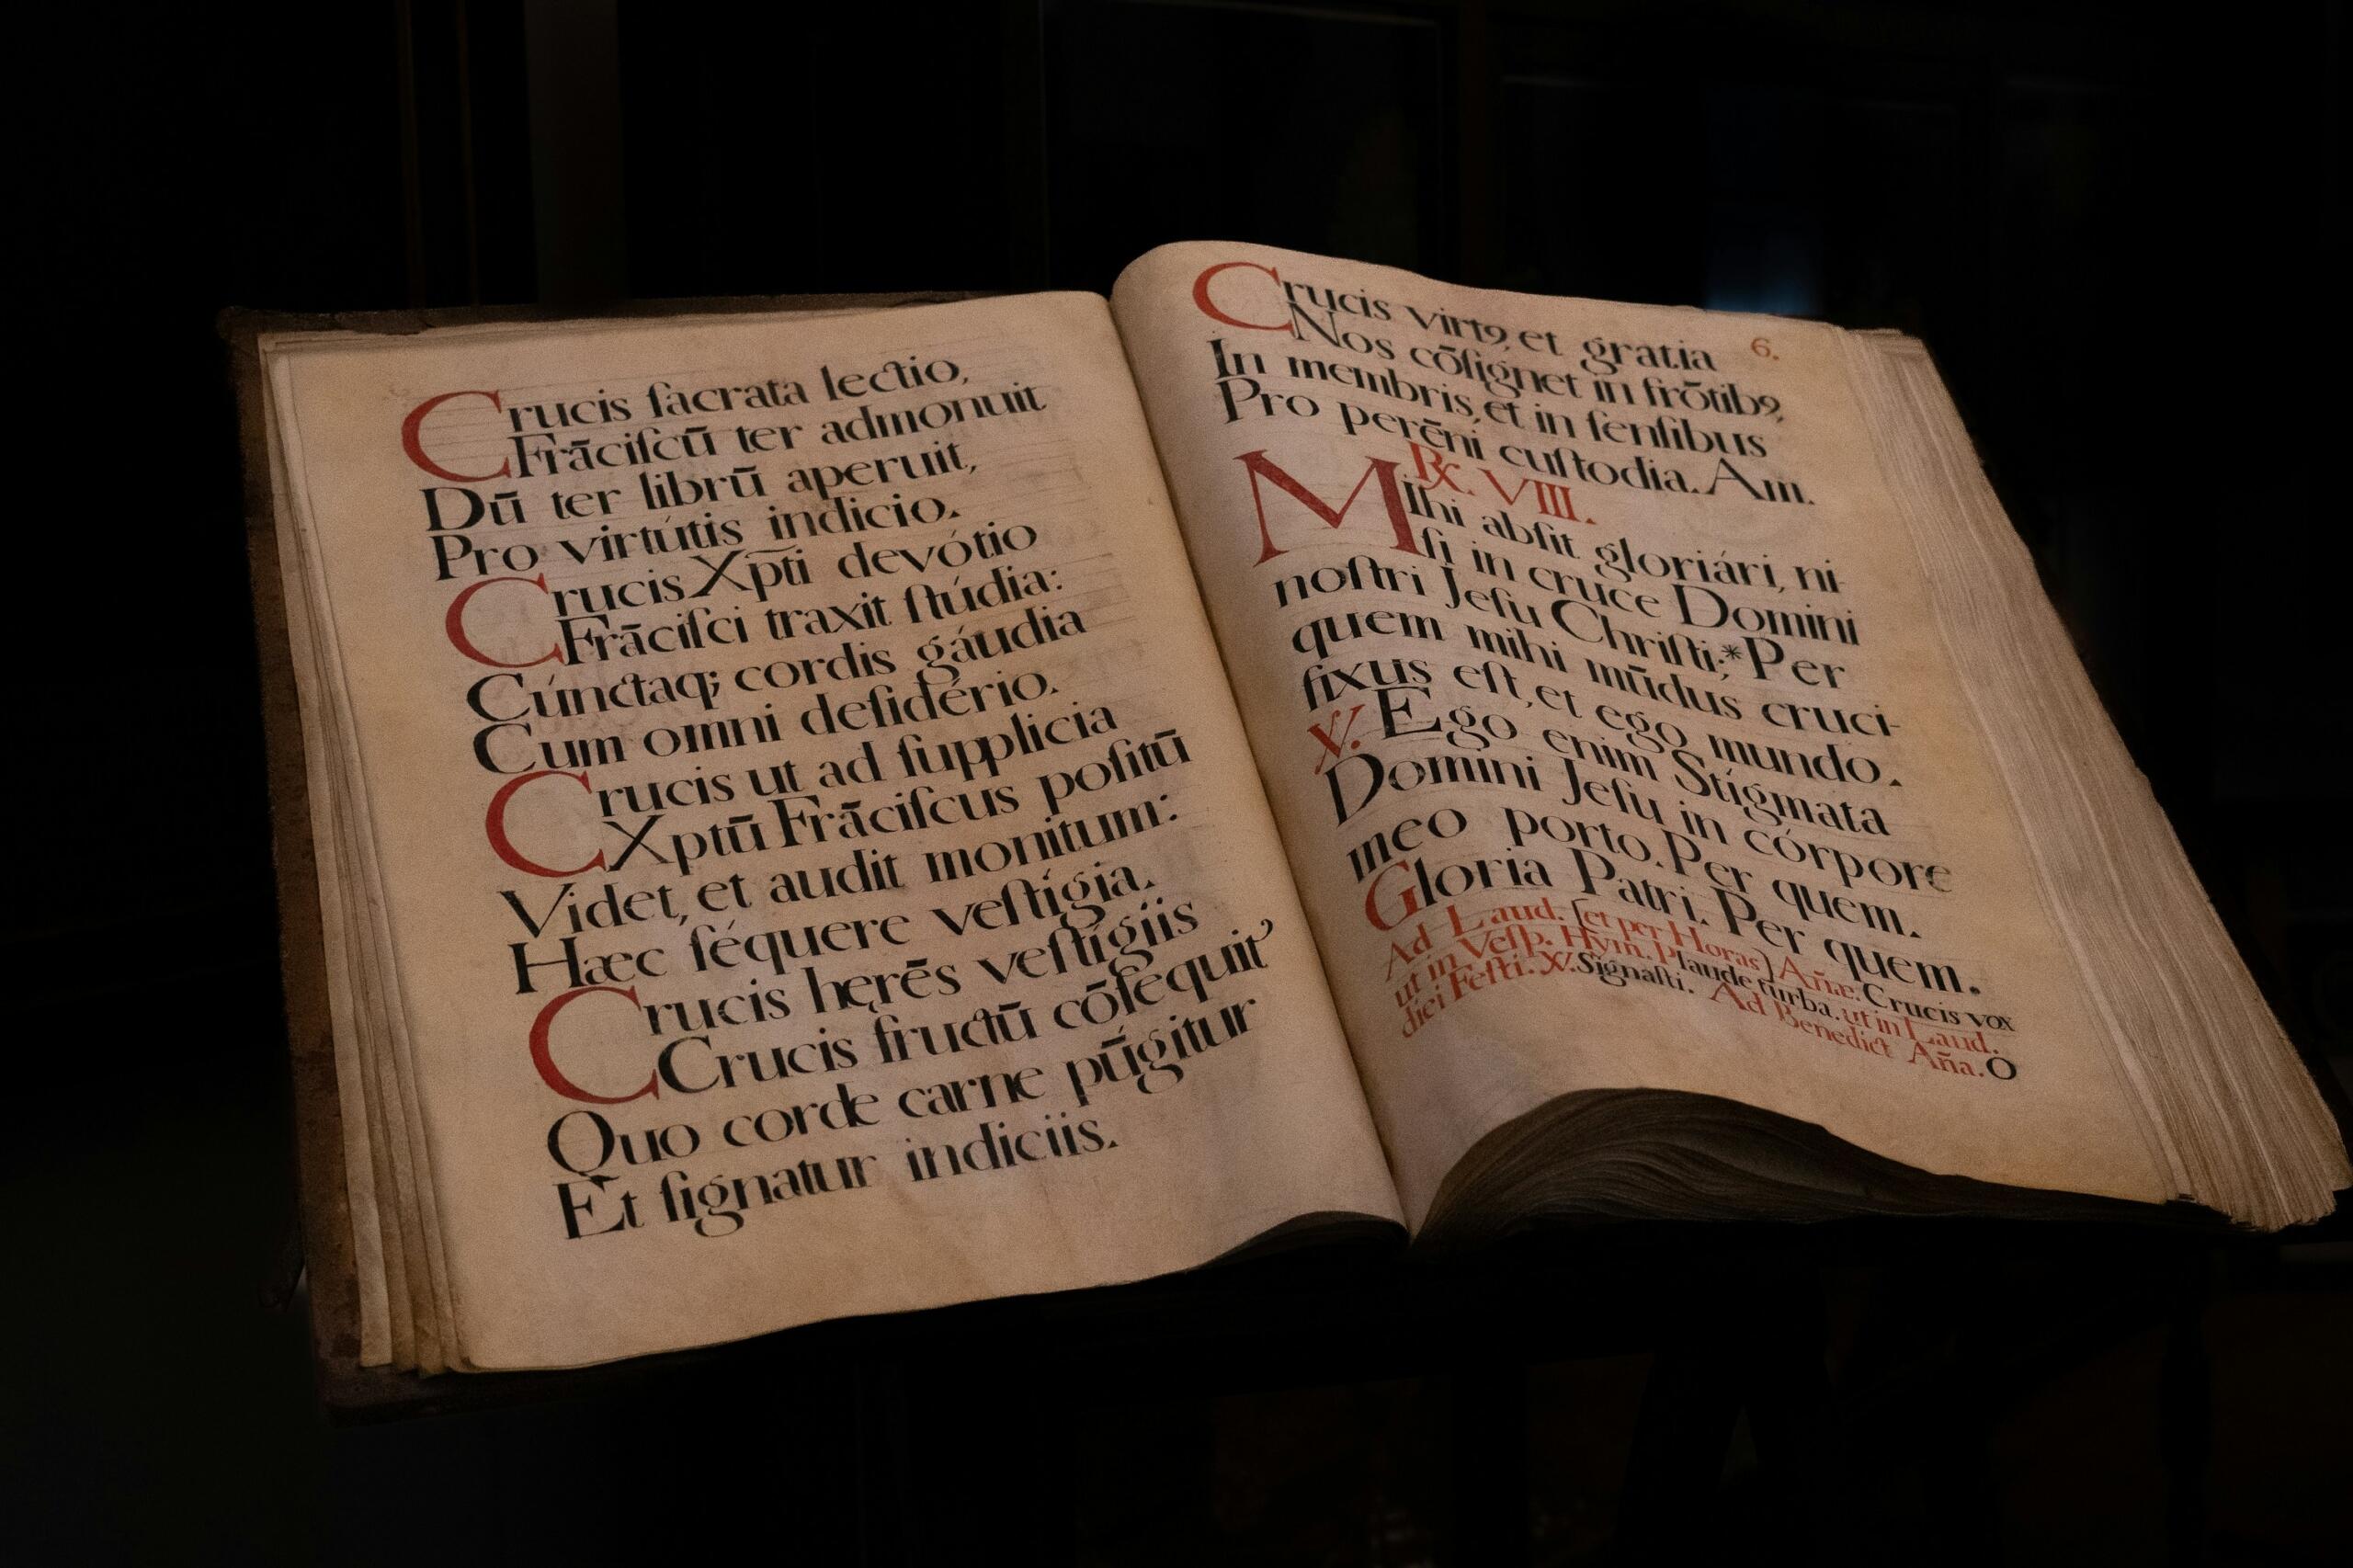 Crucis ſacrata lectio,
Frāciſcū ter admonuit
Dū ter librū aperuit,
Pro virtútis indicio.
Crucis Xp̄ti devótio
Frāciſci traxit ſtúdia:
Cúnctaq; cordis gáudia
Cum omni deſidério.
Crucis ut ad ſupplicia
Xptū Frāciſcus poſitū
Videt, et audit monitum:
Hæc ſéquere veſtígia.
Crucis hęrēs veſtígiis
Crucis fructū cōſequit᾽
Quo corde carne pūgitur
Et ſignatur indiciis.
6.
Crucis virtꝰ, et gratia
Nos cōſignet in frōtibꝰ,
In membris, et in ſenſibus
Pro perēni cuſtodia. Am.
℞. VIII.
Mihi abſit gloriári, ni-
ſi in cruce Domini
noſtri Jeſu Chriſti; * Per
quem mihi mūdus cruci-
fixus eſt, et ego mundo.
℣. Ego enim Stigmata
Domini Jeſu in córpore
meo porto. Per quem.
Gloria Patri. Per quem.
Ad Laud. (et per Horas) Añæ. Crucis vox
ut in Veſp. Hym. Plaude turba. ut in Laud.
diei Feſti. ℣. Signaſti. Ad Benedict Aña. O